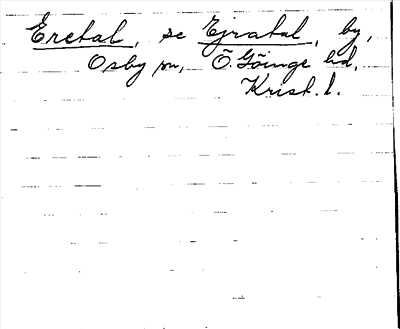 Eretal, se Ejratal, by,
Osby sn, Ö. Göinge hd,
Krist. l.